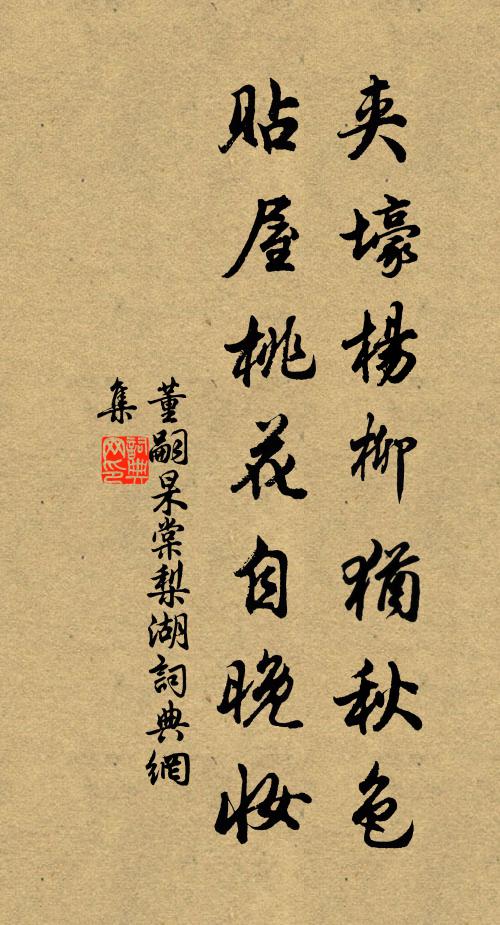 夹壕楊柳猶秋色
貼屋桃花自晚妝
董嗣杲棠梨湖詞典網
集
詞典
网印